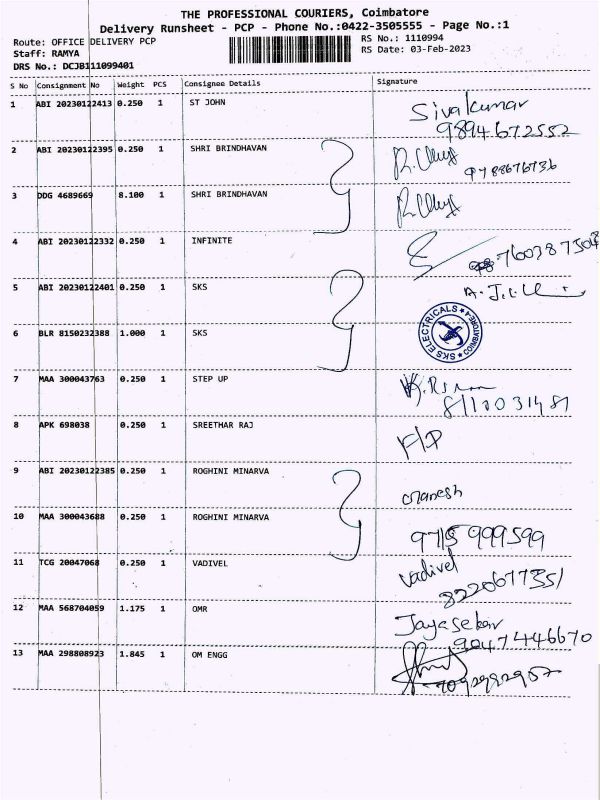 THE PROFESSIONAL COURIERS, Coimbatore
Delivery Runsheet - PCP - Phone No.:0422-3505555 - Page No.:1
Route: OFFICE DELIVERY PCP
RS No.: 1110994
Staff: RAMYA
RS Date: 03-Feb-2023
DRS No.: DCJB111099401
S No Consignment No Weight PCS Consignee Details Signature
1 ABI 20230122413 0.250 1 ST JOHN Sivakumar
9894672552
2 ABI 20230122395 0.250 1 SHRI BRINDHAVAN
9788676736
3 DDG 4689669 8.100 1 SHRI BRINDHAVAN
4 ABI 20230122332 0.250 1 INFINITE
5 ABI 20230122401 0.250 1 SKS
6 BLR 8150232388 1.000 1 SKS
SKS ELECTRICALS
7 MAA 300043763 0.250 1 STEP UP
8 APK 698038 0.250 1 SREETHAR RAJ
9 ABI 20230122385 0.250 1 ROGHINI MINARVA
10 MAA 300043688 0.250 1 ROGHINI MINARVA
9715 999599
11 TCG 20047068 0.250 1 VADIVEL Vadivel
8220677351
12 MAA 568704059 1.175 1 OMR Jayasekar
9047446670
13 MAA 298808923 1.845 1 OM ENGG